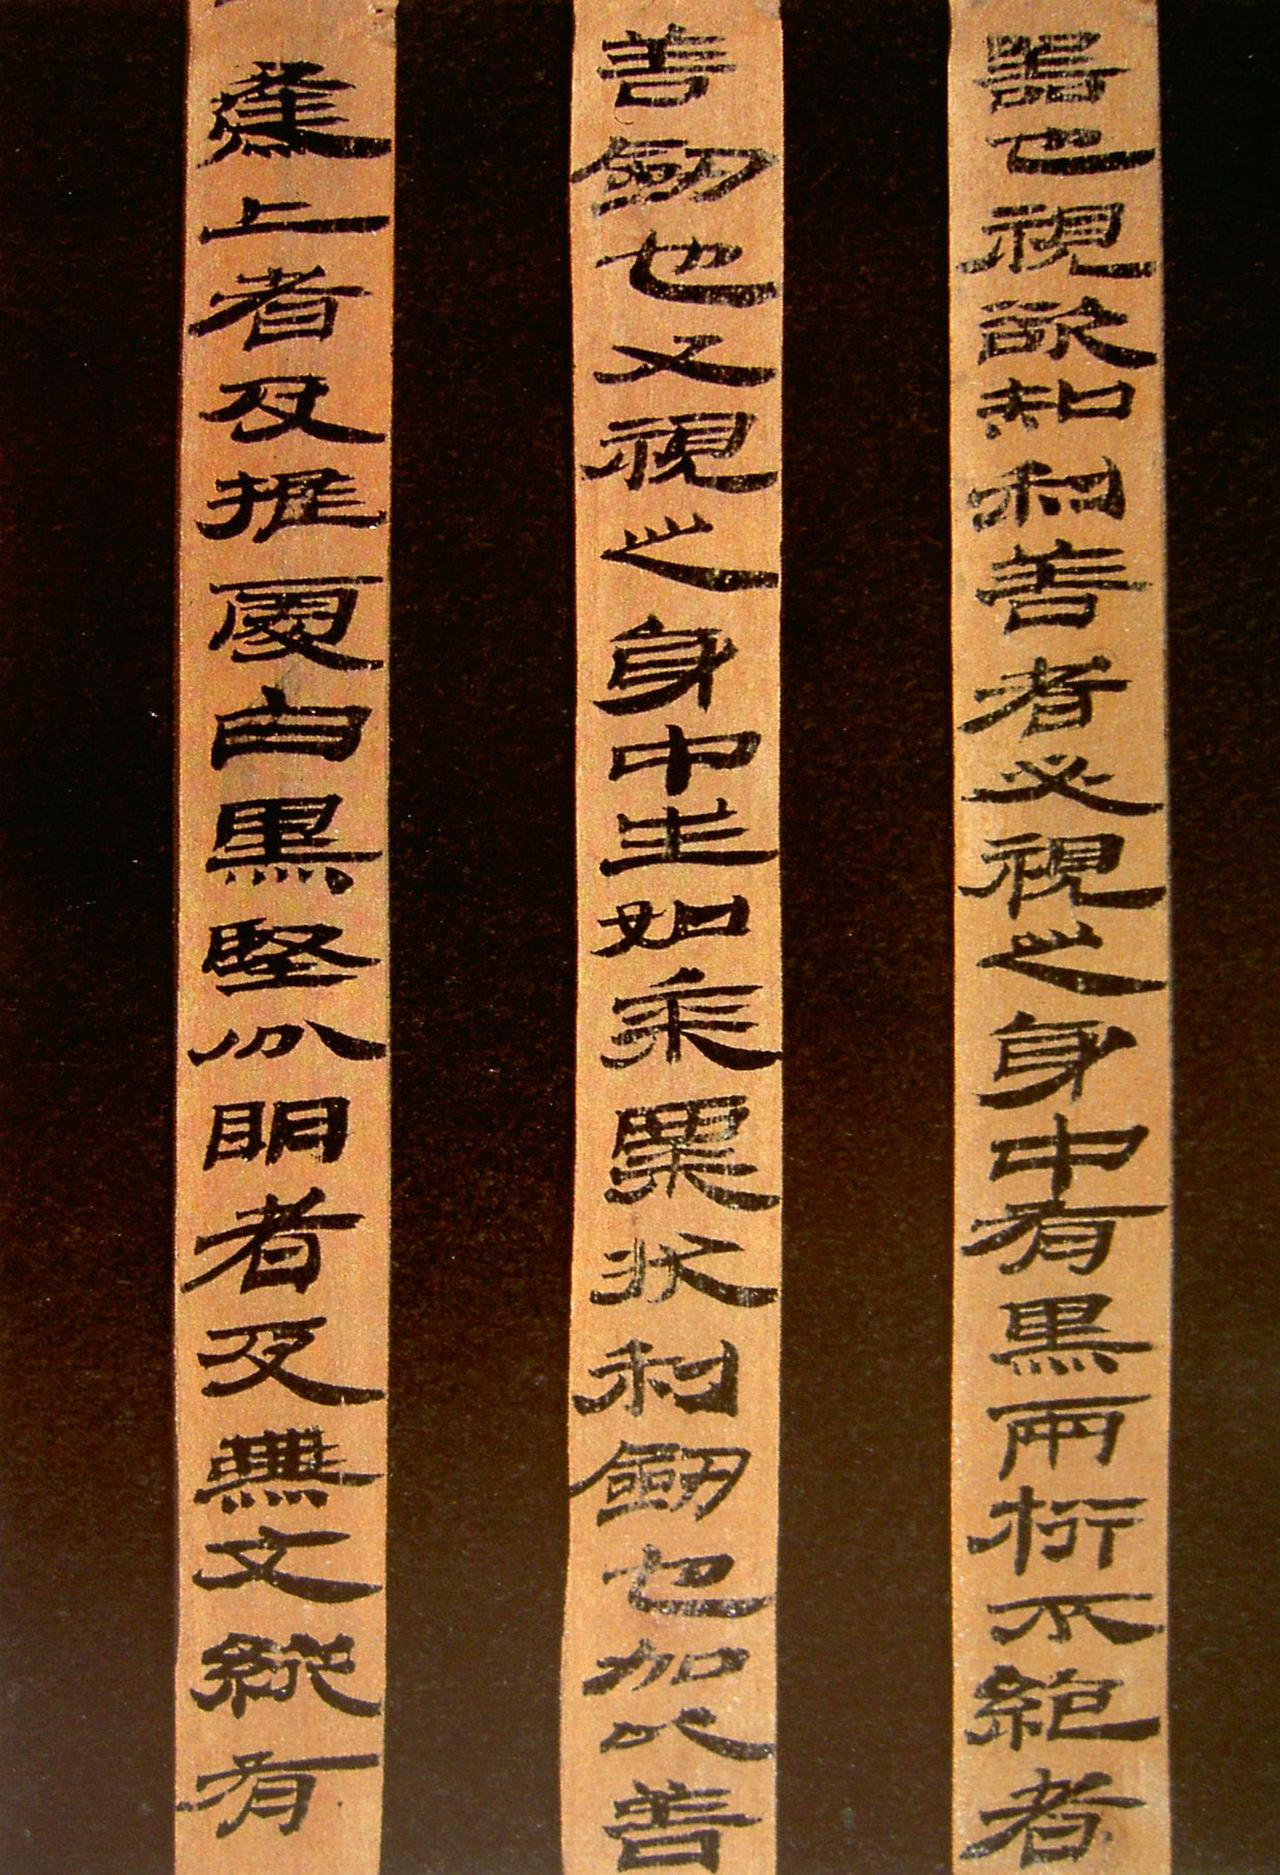 器也視欲知利善者必視之身中有黑兩桁不絕者
善劍也又視之身中生如黍粟狀利劍也加以善
㷭上者及推處白黑堅分明者及無文縱有